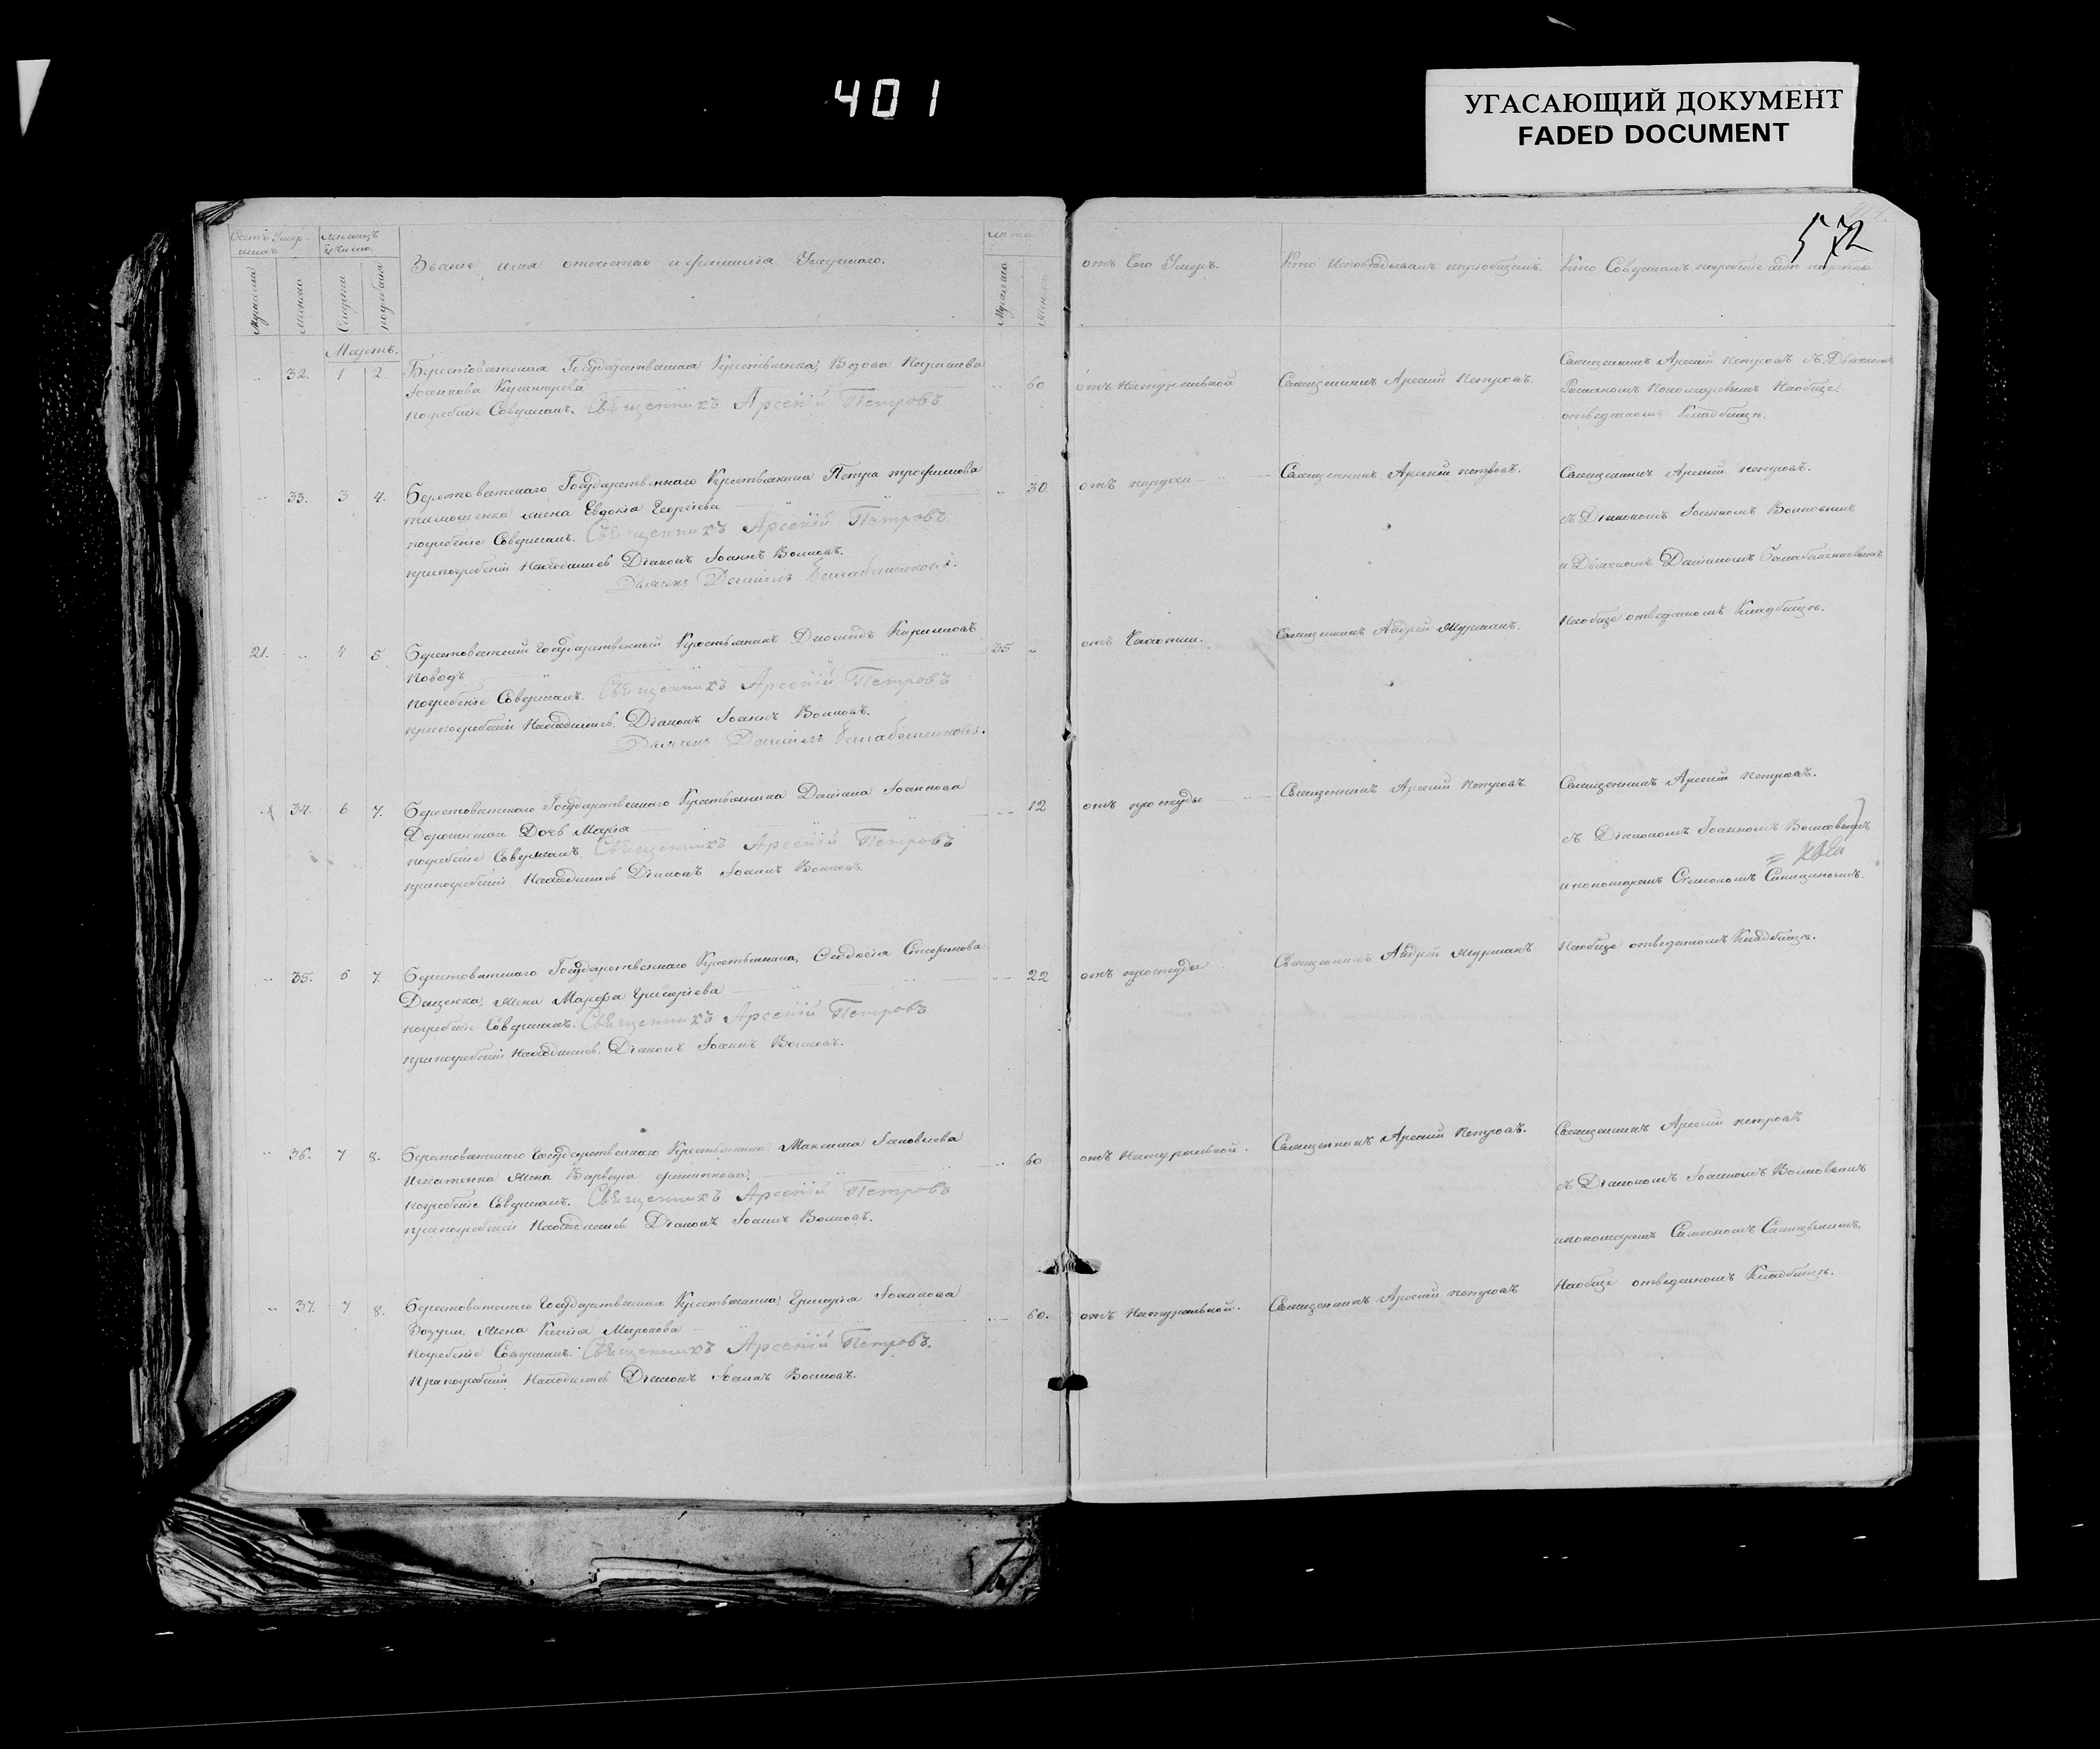 401
УГАСАЮЩИЙ ДОКУМЕНТ
FADED DOCUMENT
572
Счетъ Умер-
шихъ
Мѣсяцъ
и Число.
Званіе имя отечество и фамилія Умершаго.
Лѣта
Мужеска
Женска
Смерти
погребенія
Мужеска
Женска
отъ Чего Умеръ.
Кто Исповѣдывалъ и пріобщалъ.
Кто Совершалъ погребеніе и гдѣ погребены
Мартъ.
32. 1 2. Берестоватская Государственная Крестьянка, Вдова
погребеніе Совершалъ. Священникъ Арсеній Петровъ
60 отъ Натуральной Священникъ Арсеній Петровъ.
Священникъ Арсеній Петровъ съ Дьячкомъ
Пономаревымъ На обще
отведенномъ Кладбищѣ.
33. 3 4. Берестоватскаго Государственнаго Крестьянина Петра Трофимова
Тимошенка жена Евдокія Георгіева
погребеніе Совершалъ. Священникъ Арсеній Петровъ
при погребеніи Находились Діаконъ Іоаннъ Волковъ.
Дьячекъ Даніилъ Балабаненковъ.
30. отъ Священникъ Арсеній Петровъ.
Священникъ Арсеній Петровъ.
съ Діакономъ Іоанномъ Волковымъ
и Дьячкомъ Даніиломъ Балабаненковымъ
На обще отведенномъ Кладбищѣ.
21. 4 5 Берестоватскій Государственный Крестьянинъ Діомидъ Кирилловъ
погребеніе Совершалъ. Священникъ Арсеній Петровъ
при погребеніи Находились Діаконъ Іоаннъ Волковъ.
Дьячекъ Даніилъ Балабаненковъ.
35 отъ Чахотки. Священникъ Андрей Журманъ.
34. 6 7. Берестоватскаго Государственнаго Крестьянина Даніила Іоаннова
Дочь Марія
погребеніе Совершалъ. Священникъ Арсеній Петровъ
при погребеніи Находились Діаконъ Іоаннъ Волковъ.
12 отъ простуды Священникъ Арсеній Петровъ.
Священникъ Арсеній Петровъ.
съ Діакономъ Іоанномъ Волковымъ
и пономаремъ Симеономъ
На обще отведенномъ Кладбищѣ.
35. 6 7. Берестоватскаго Государственнаго Крестьянина, Феодосія Стефанова
Доценка, жена Марфа Григоріева
погребеніе Совершалъ. Священникъ Арсеній Петровъ
при погребеніи Находились Діаконъ Іоаннъ Волковъ.
22 отъ простуды Священникъ Андрей Журманъ
36. 7 8. Берестоватскаго Государственнаго Крестьянина, Максима Іаковлева
Игнатенка жена Варвара Филиппова,
погребеніе Совершалъ. Священникъ Арсеній Петровъ
при погребеніи Находились Діаконъ Іоаннъ Волковъ.
60 отъ Натуральной. Священникъ Арсеній Петровъ.
Священникъ Арсеній Петровъ
съ Діакономъ Іоанномъ Волковымъ
и пономаремъ Симеономъ
На обще отведенномъ Кладбищѣ.
37. 7 8. Берестоватскаго Государственнаго Крестьянина, Григорія Іоаннова
жена Ксенія Миронова
погребеніе Совершалъ. Священникъ Арсеній Петровъ.
При погребеніи Находились Діаконъ Іоаннъ Волковъ.
60. отъ Натуральной. Священникъ Арсеній Петровъ